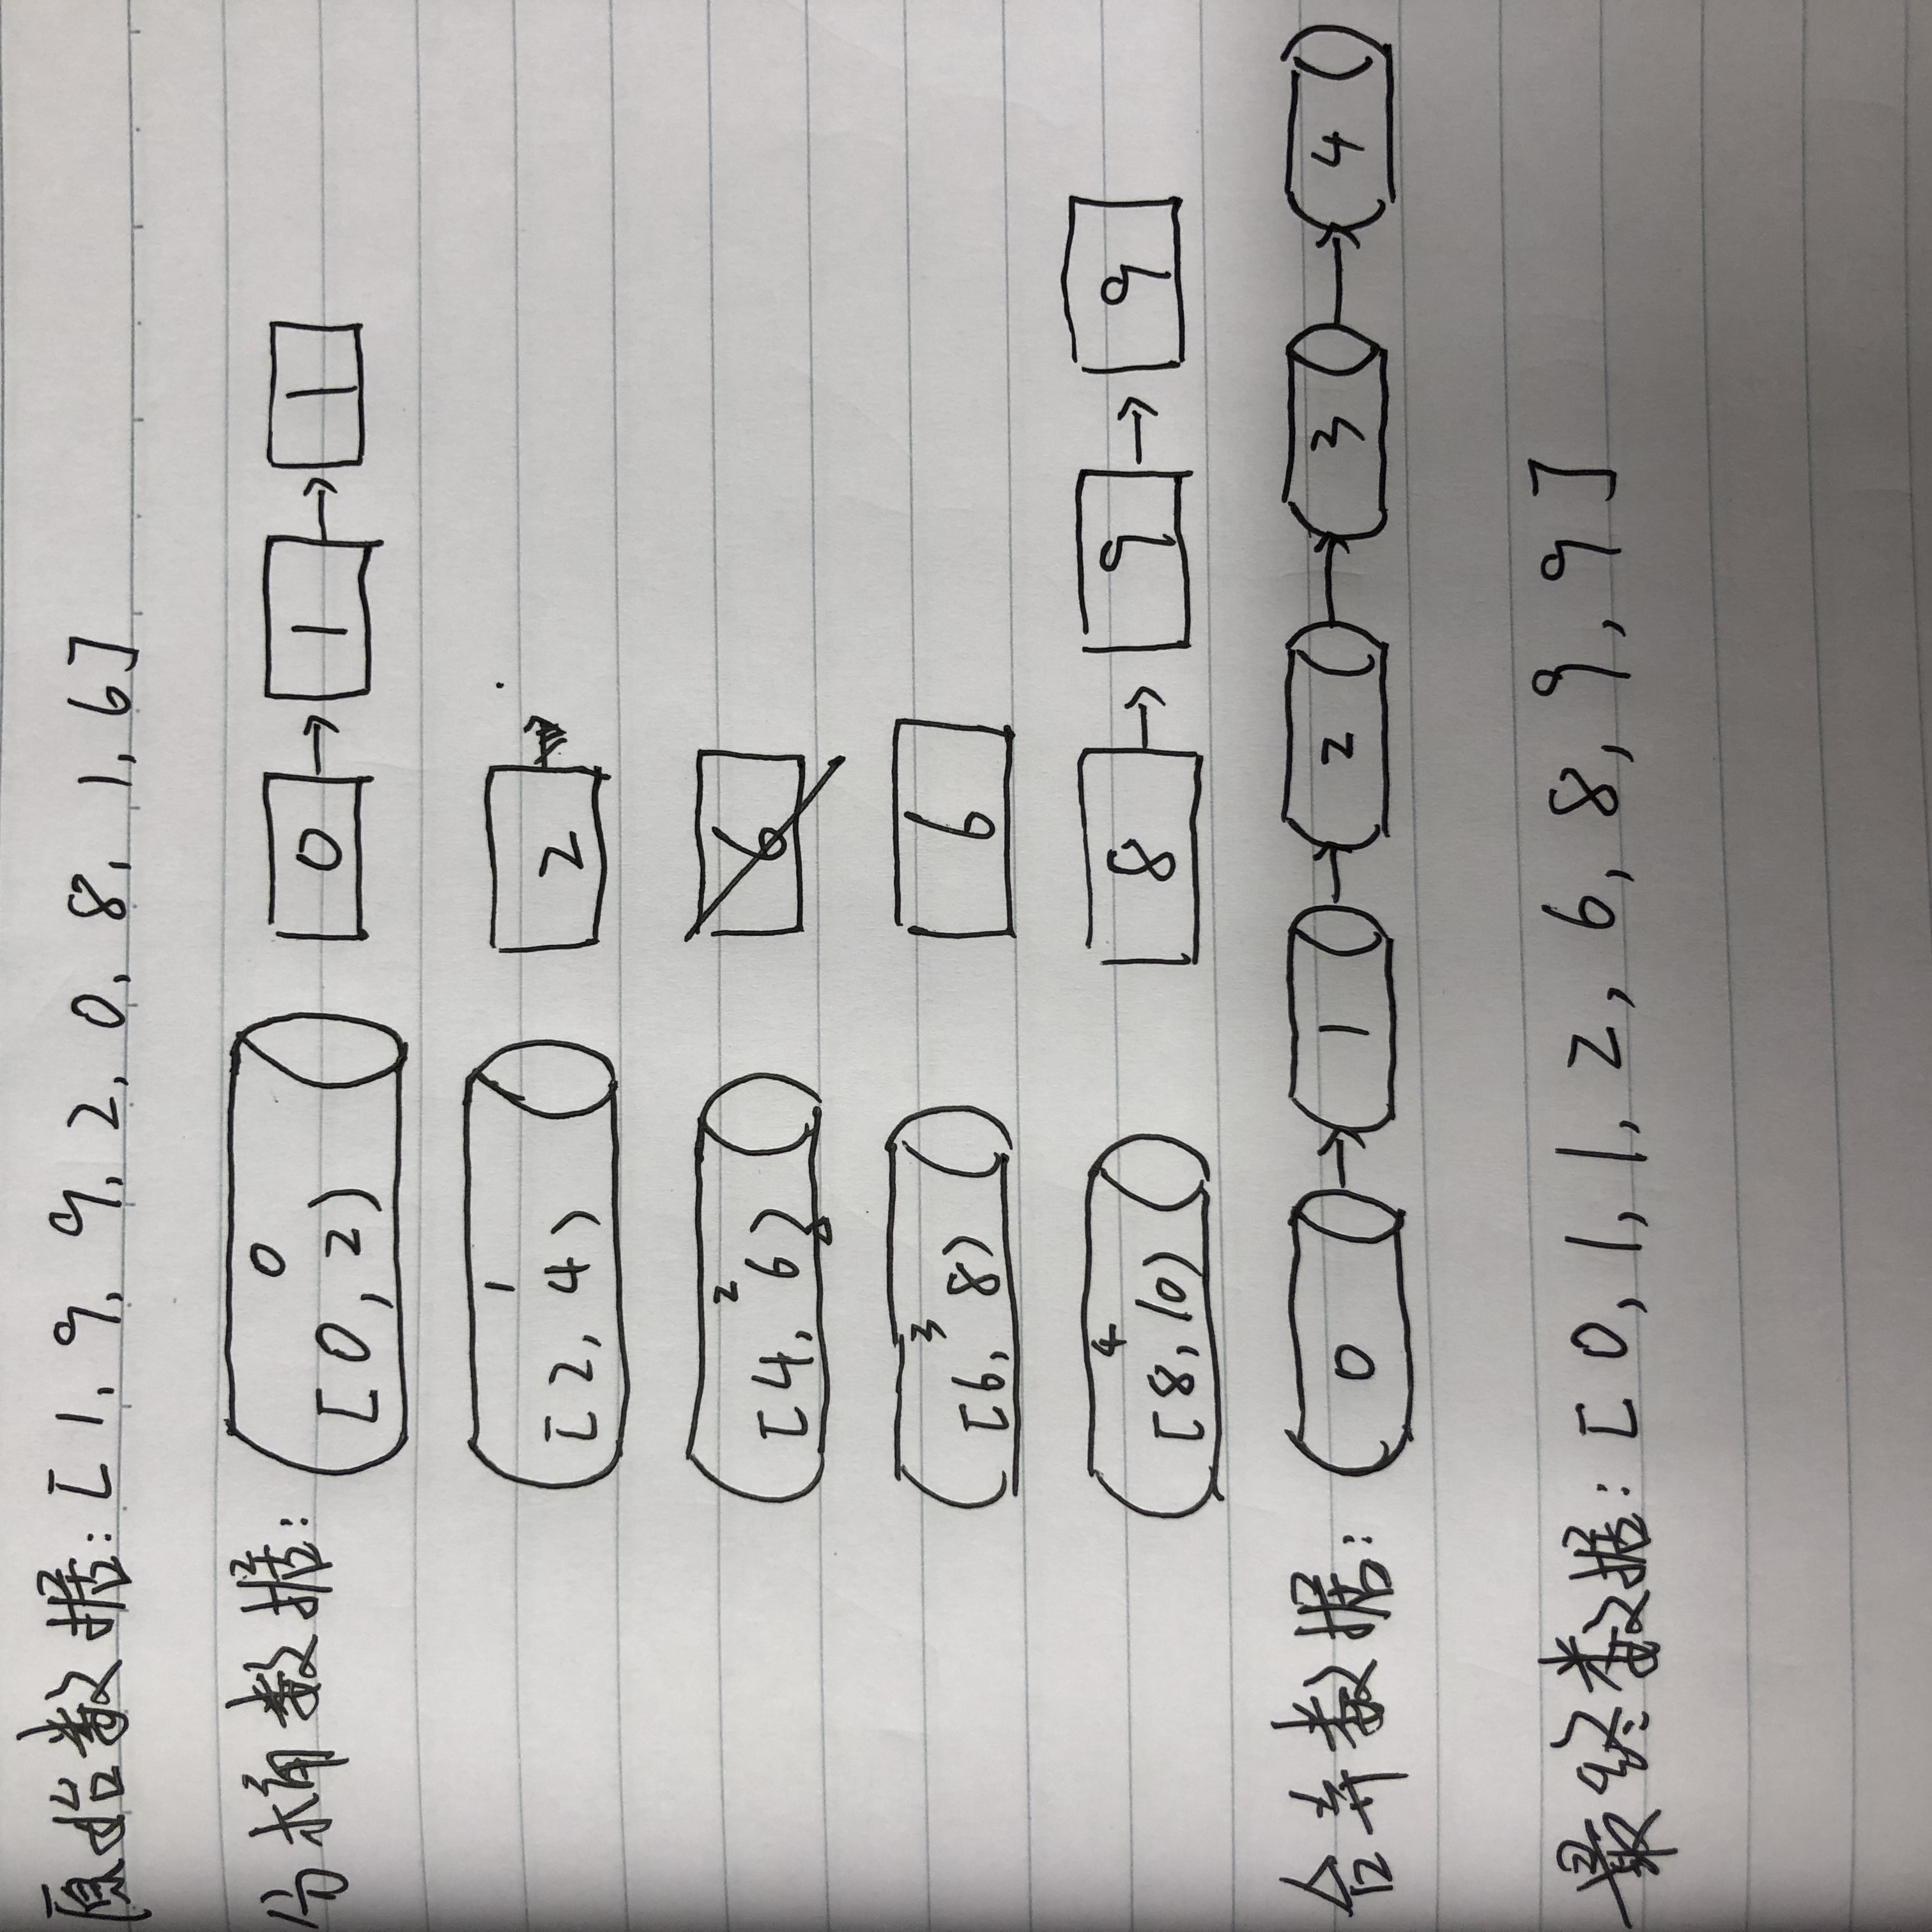 原始数据: [1, 9, 9, 2, 0, 8, 1, 6]
分桶数据:
0
[0, 2)
0 → 1 → 1
1
[2, 4)
2
2
[4, 6)
6
3
[6, 8)
6
4
[8, 10)
8 → 9 → 9
合并数据: 0 → 1 → 2 → 3 → 4
最终数据: [0, 1, 1, 2, 6, 8, 9, 9]